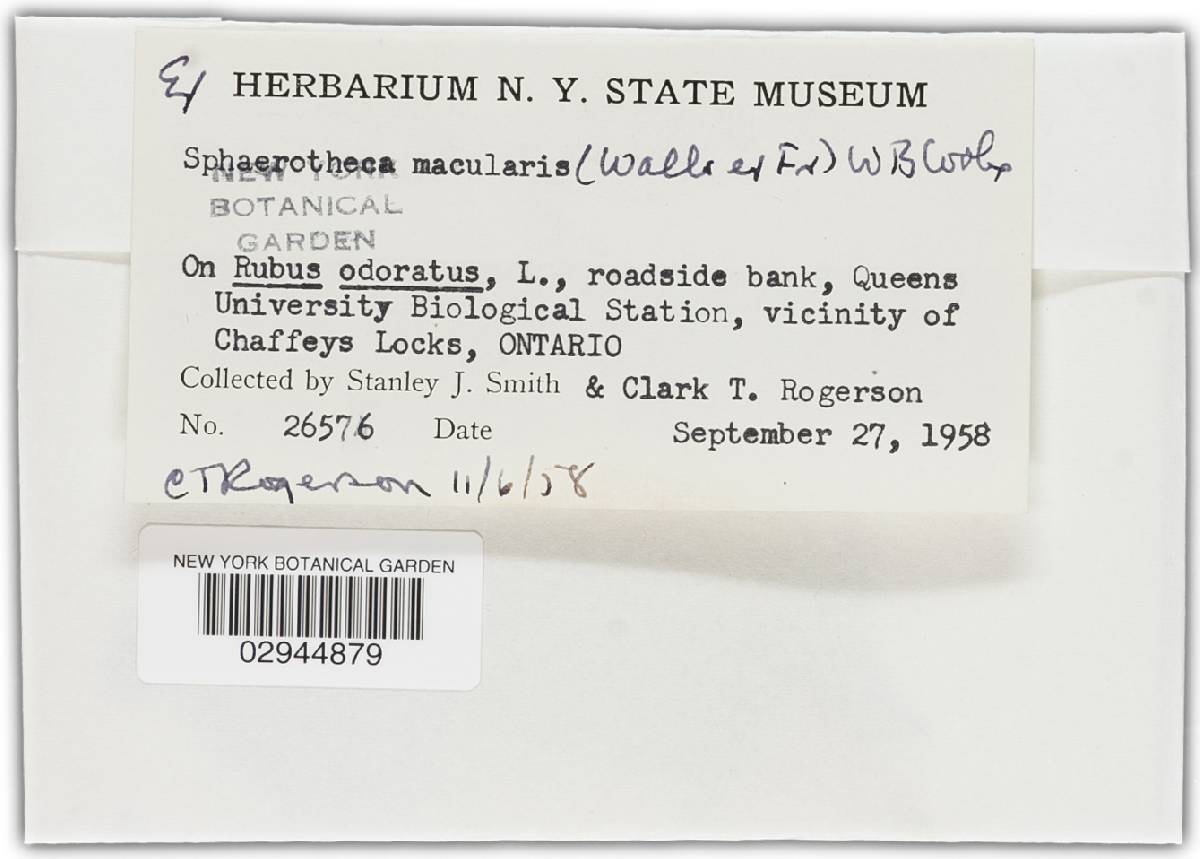 Ex HERBARIUM N. Y. STATE MUSEUM
Sphaerotheca macularis (Wallr ex Fr) WB Cooke
NEW YORK
BOTANICAL
GARDEN
On Rubus odoratus, L., roadside bank, Queens
University Biological Station, vicinity of
Chaffeys Locks, ONTARIO
Collected by Stanley J. Smith & Clark T. Rogerson
No. 26576 Date September 27, 1958
CT Rogerson 11/6/58
NEW YORK BOTANICAL GARDEN
02944879